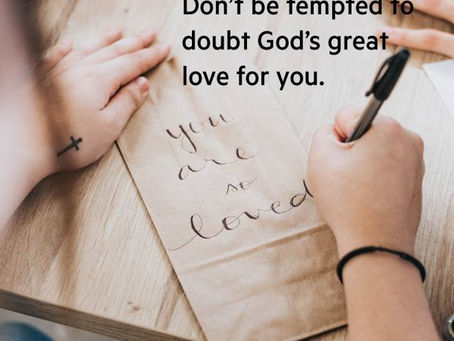 Don't be tempted to
doubt God's great
love for you.
you
are
so
loved